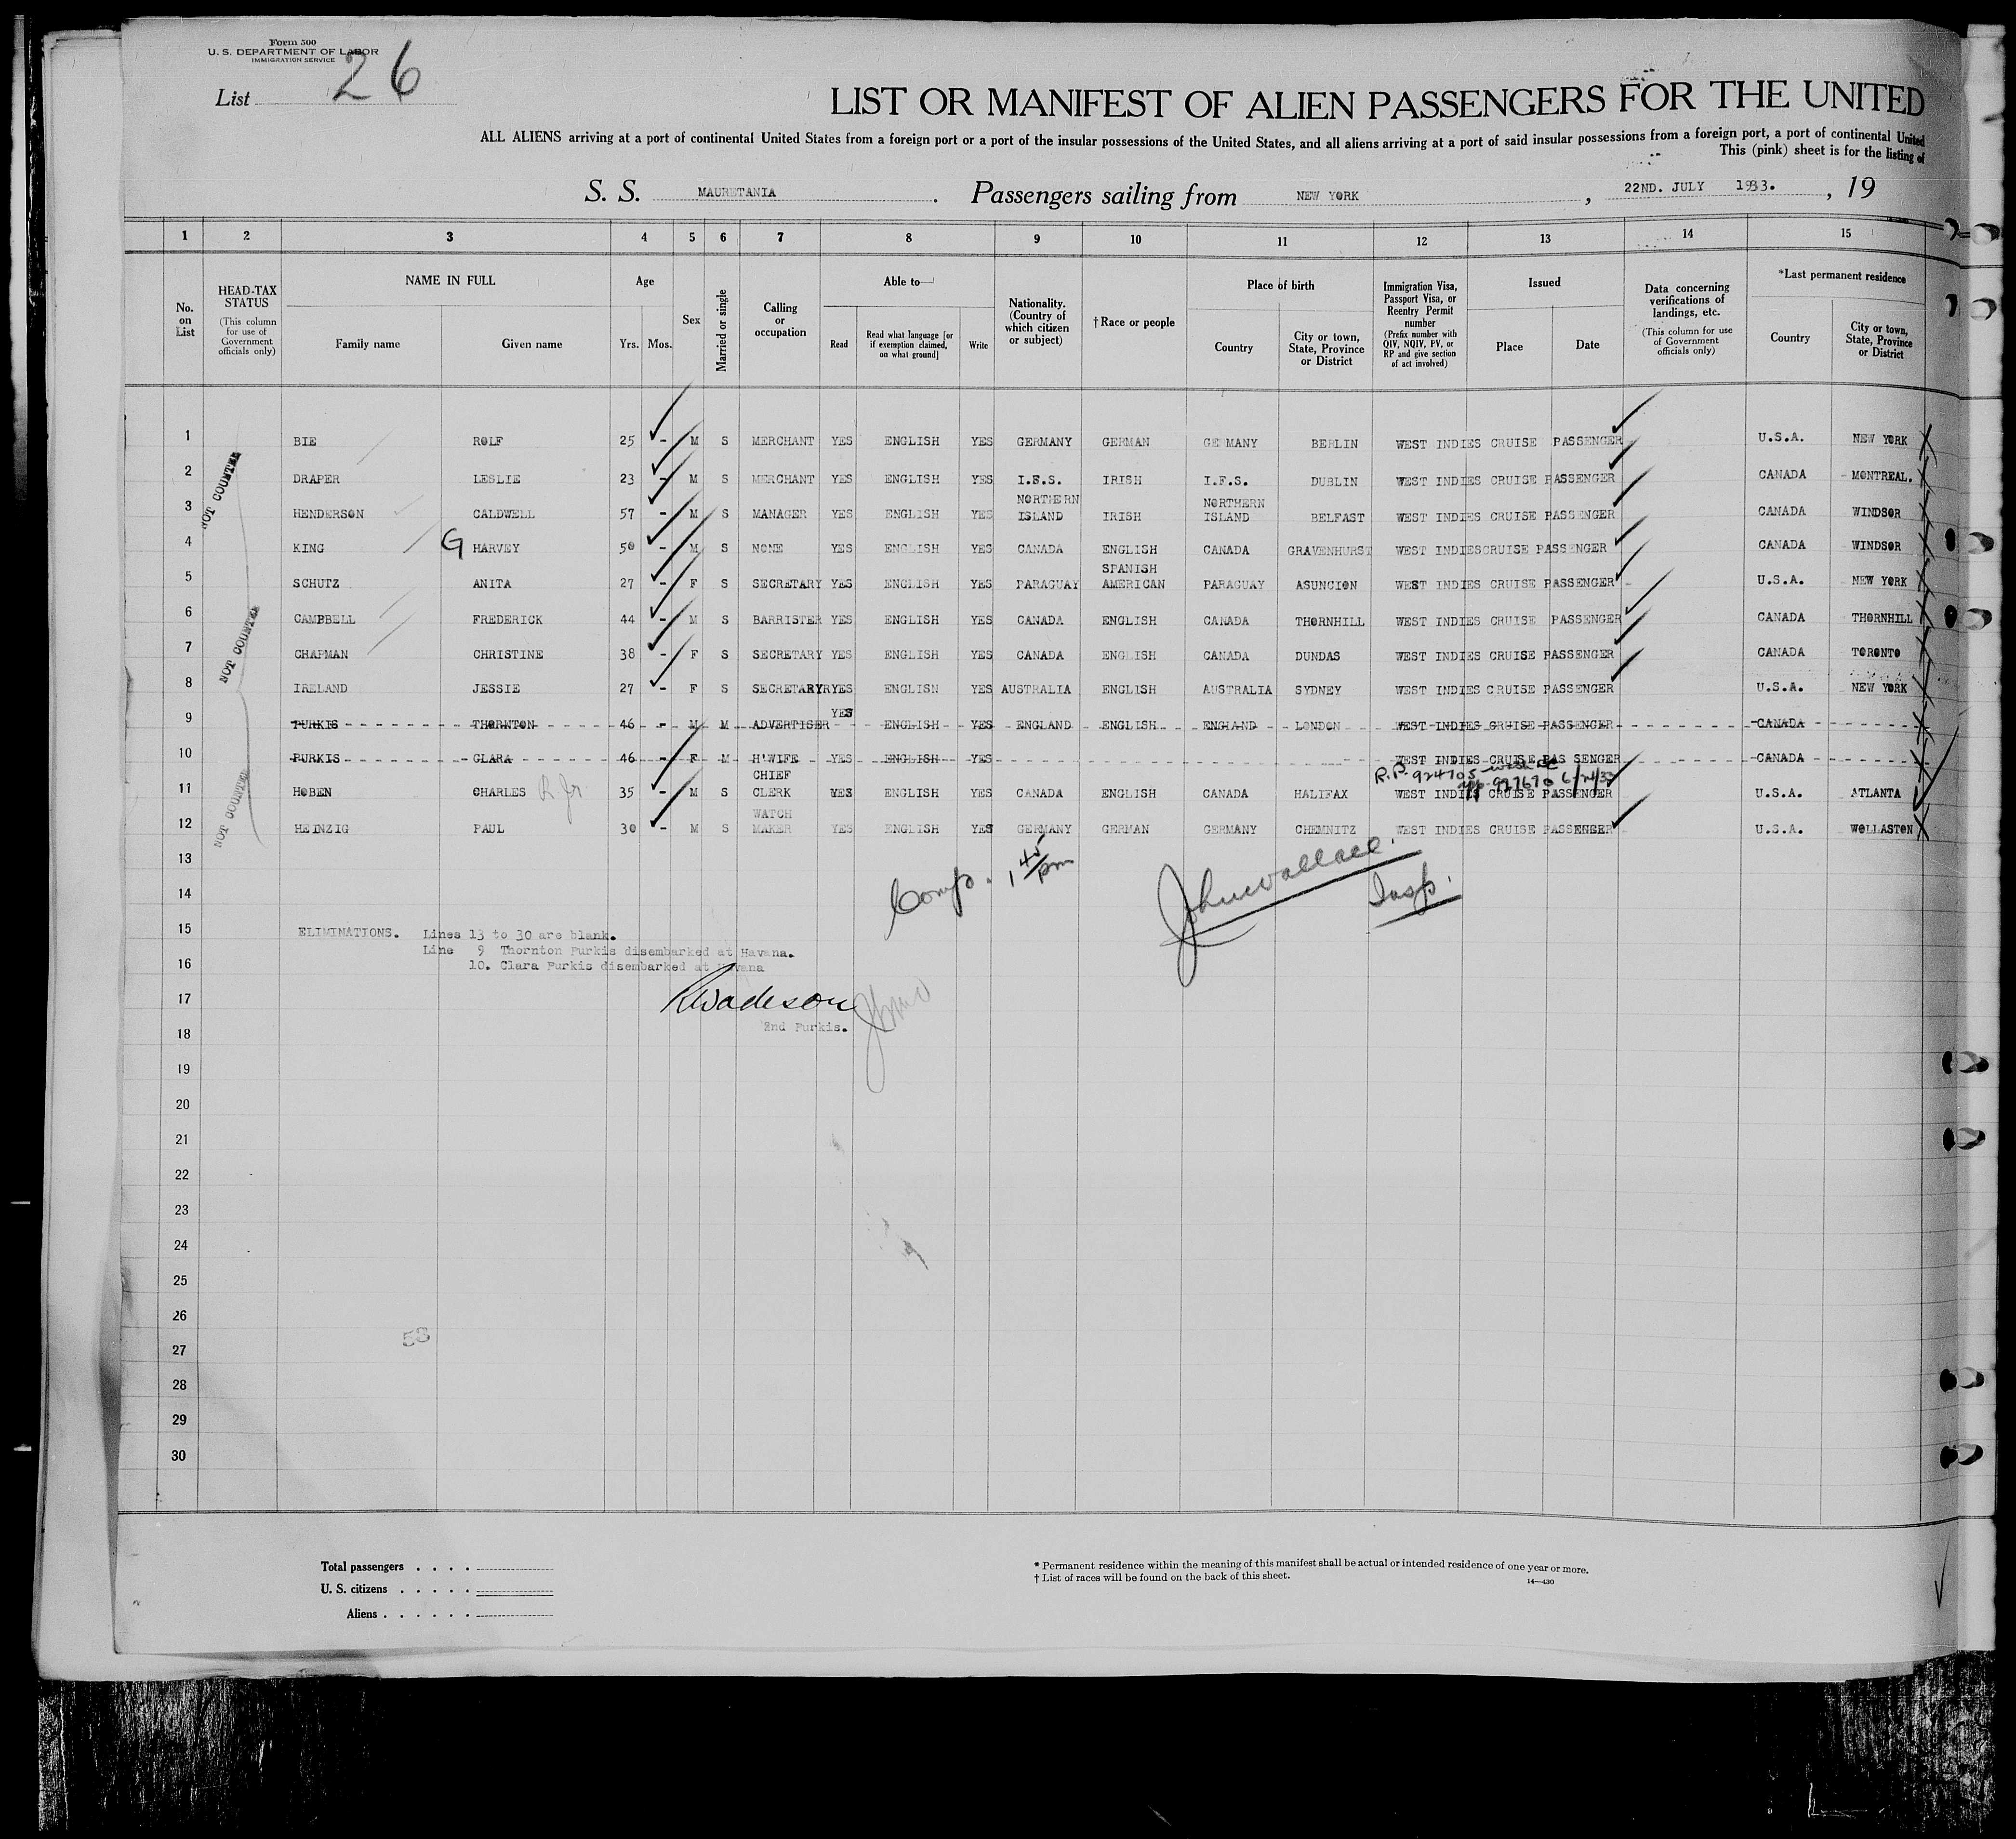 Form 500
U. S. DEPARTMENT OF LABOR
IMMIGRATION SERVICE
List 26
LIST OR MANIFEST OF ALIEN PASSENGERS FOR THE UNITED
ALL ALIENS arriving at a port of continental United States from a foreign port or a port of the insular possessions of the United States, and all aliens arriving at a port of said insular possessions from a foreign port, a port of continental United
This (pink) sheet is for the listing of
S. S. MAURETANIA . Passengers sailing from NEW YORK , 22ND. JULY 1933. , 19
1 2 3 4 5 6 7 8 9 10 11 12 13 14 15
No. on List
HEAD-TAX STATUS (This column for use of Government officials only)
NAME IN FULL
Family name Given name
Age
Yrs. Mos.
Sex
Married or single
Calling or occupation
Able to—
Read
Read what language [or if exemption claimed, on what ground]
Write
Nationality. (Country of which citizen or subject)
† Race or people
Place of birth
Country
City or town, State, Province or District
Immigration Visa, Passport Visa, or Reentry Permit number (Prefix number with QIV, NQIV, PV, or RP and give section of act involved)
Issued
Place Date
Data concerning verifications of landings, etc. (This column for use of Government officials only)
*Last permanent residence
Country
City or town, State, Province or District
1 BIE ROLF 25 - M S MERCHANT YES ENGLISH YES GERMANY GERMAN GERMANY BERLIN WEST INDIES CRUISE PASSENGER U.S.A. NEW YORK
2 DRAPER LESLIE 23 - M S MERCHANT YES ENGLISH YES I.F.S. IRISH I.F.S. DUBLIN WEST INDIES CRUISE PASSENGER CANADA MONTREAL.
NOT COUNTED
3 HENDERSON CALDWELL 57 - M S MANAGER YES ENGLISH YES NORTHERN ISLAND IRISH NORTHERN ISLAND BELFAST WEST INDIES CRUISE PASSENGER CANADA WINDSOR
4 KING G HARVEY 50 - M S NONE YES ENGLISH YES CANADA ENGLISH CANADA GRAVENHURST WEST INDIES CRUISE PASSENGER CANADA WINDSOR
5 SCHUTZ ANITA 27 - F S SECRETARY YES ENGLISH YES PARAGUAY SPANISH AMERICAN PARAGUAY ASUNCION WEST INDIES CRUISE PASSENGER U.S.A. NEW YORK
6 CAMPBELL FREDERICK 44 - M S BARRISTER YES ENGLISH YES CANADA ENGLISH CANADA THORNHILL WEST INDIES CRUISE PASSENGER CANADA THORNHILL
NOT COUNTED
7 CHAPMAN CHRISTINE 38 - F S SECRETARY YES ENGLISH YES CANADA ENGLISH CANADA DUNDAS WEST INDIES CRUISE PASSENGER CANADA TORONTO
8 IRELAND JESSIE 27 - F S SECRETARYRYES ENGLISN YES AUSTRALIA ENGLISH AUSTRALIA SYDNEY WEST INDIES CRUISE PASSENGER U.S.A. NEW YORK
9 PURKIS THORNTON 46 - M M ADVERTISER YES ENGLISH YES ENGLAND ENGLISH ENGLAND LONDON WEST INDIES CRUISE PASSENGER CANADA
10 PURKIS CLARA 46 - F M H'WIFE YES ENGLISH YES WEST INDIES CRUISE PAS SENGER CANADA
R.P. 924705
927670 6/24/33
11 HOBEN CHARLES R Jr 35 - M S CHIEF CLERK YES ENGLISH YES CANADA ENGLISH CANADA HALIFAX WEST INDIES CRUISE PASSENGER U.S.A. ATLANTA
NOT COUNTED
12 HEINZIG PAUL 30 - M S WATCH MAKER YES ENGLISH YES GERMANY GERMAN GERMANY CHEMNITZ WEST INDIES CRUISE PASSENGER U.S.A. WOLLASTON
13
Comp. 1 45/pm John Wallace. Insp.
14
15 ELIMINATIONS. Lines 13 to 30 are blank.
Line 9 Thornton Purkis disembarked at Havana.
16 10. Clara Purkis disembarked at Havana
17 RWadeson
2nd Purkis.
18
19
20
21
22
23
24
25
26
53
27
28
29
30
Total passengers . . . .
U. S. citizens . . . . .
Aliens . . . . . .
* Permanent residence within the meaning of this manifest shall be actual or intended residence of one year or more.
† List of races will be found on the back of this sheet.
14—430